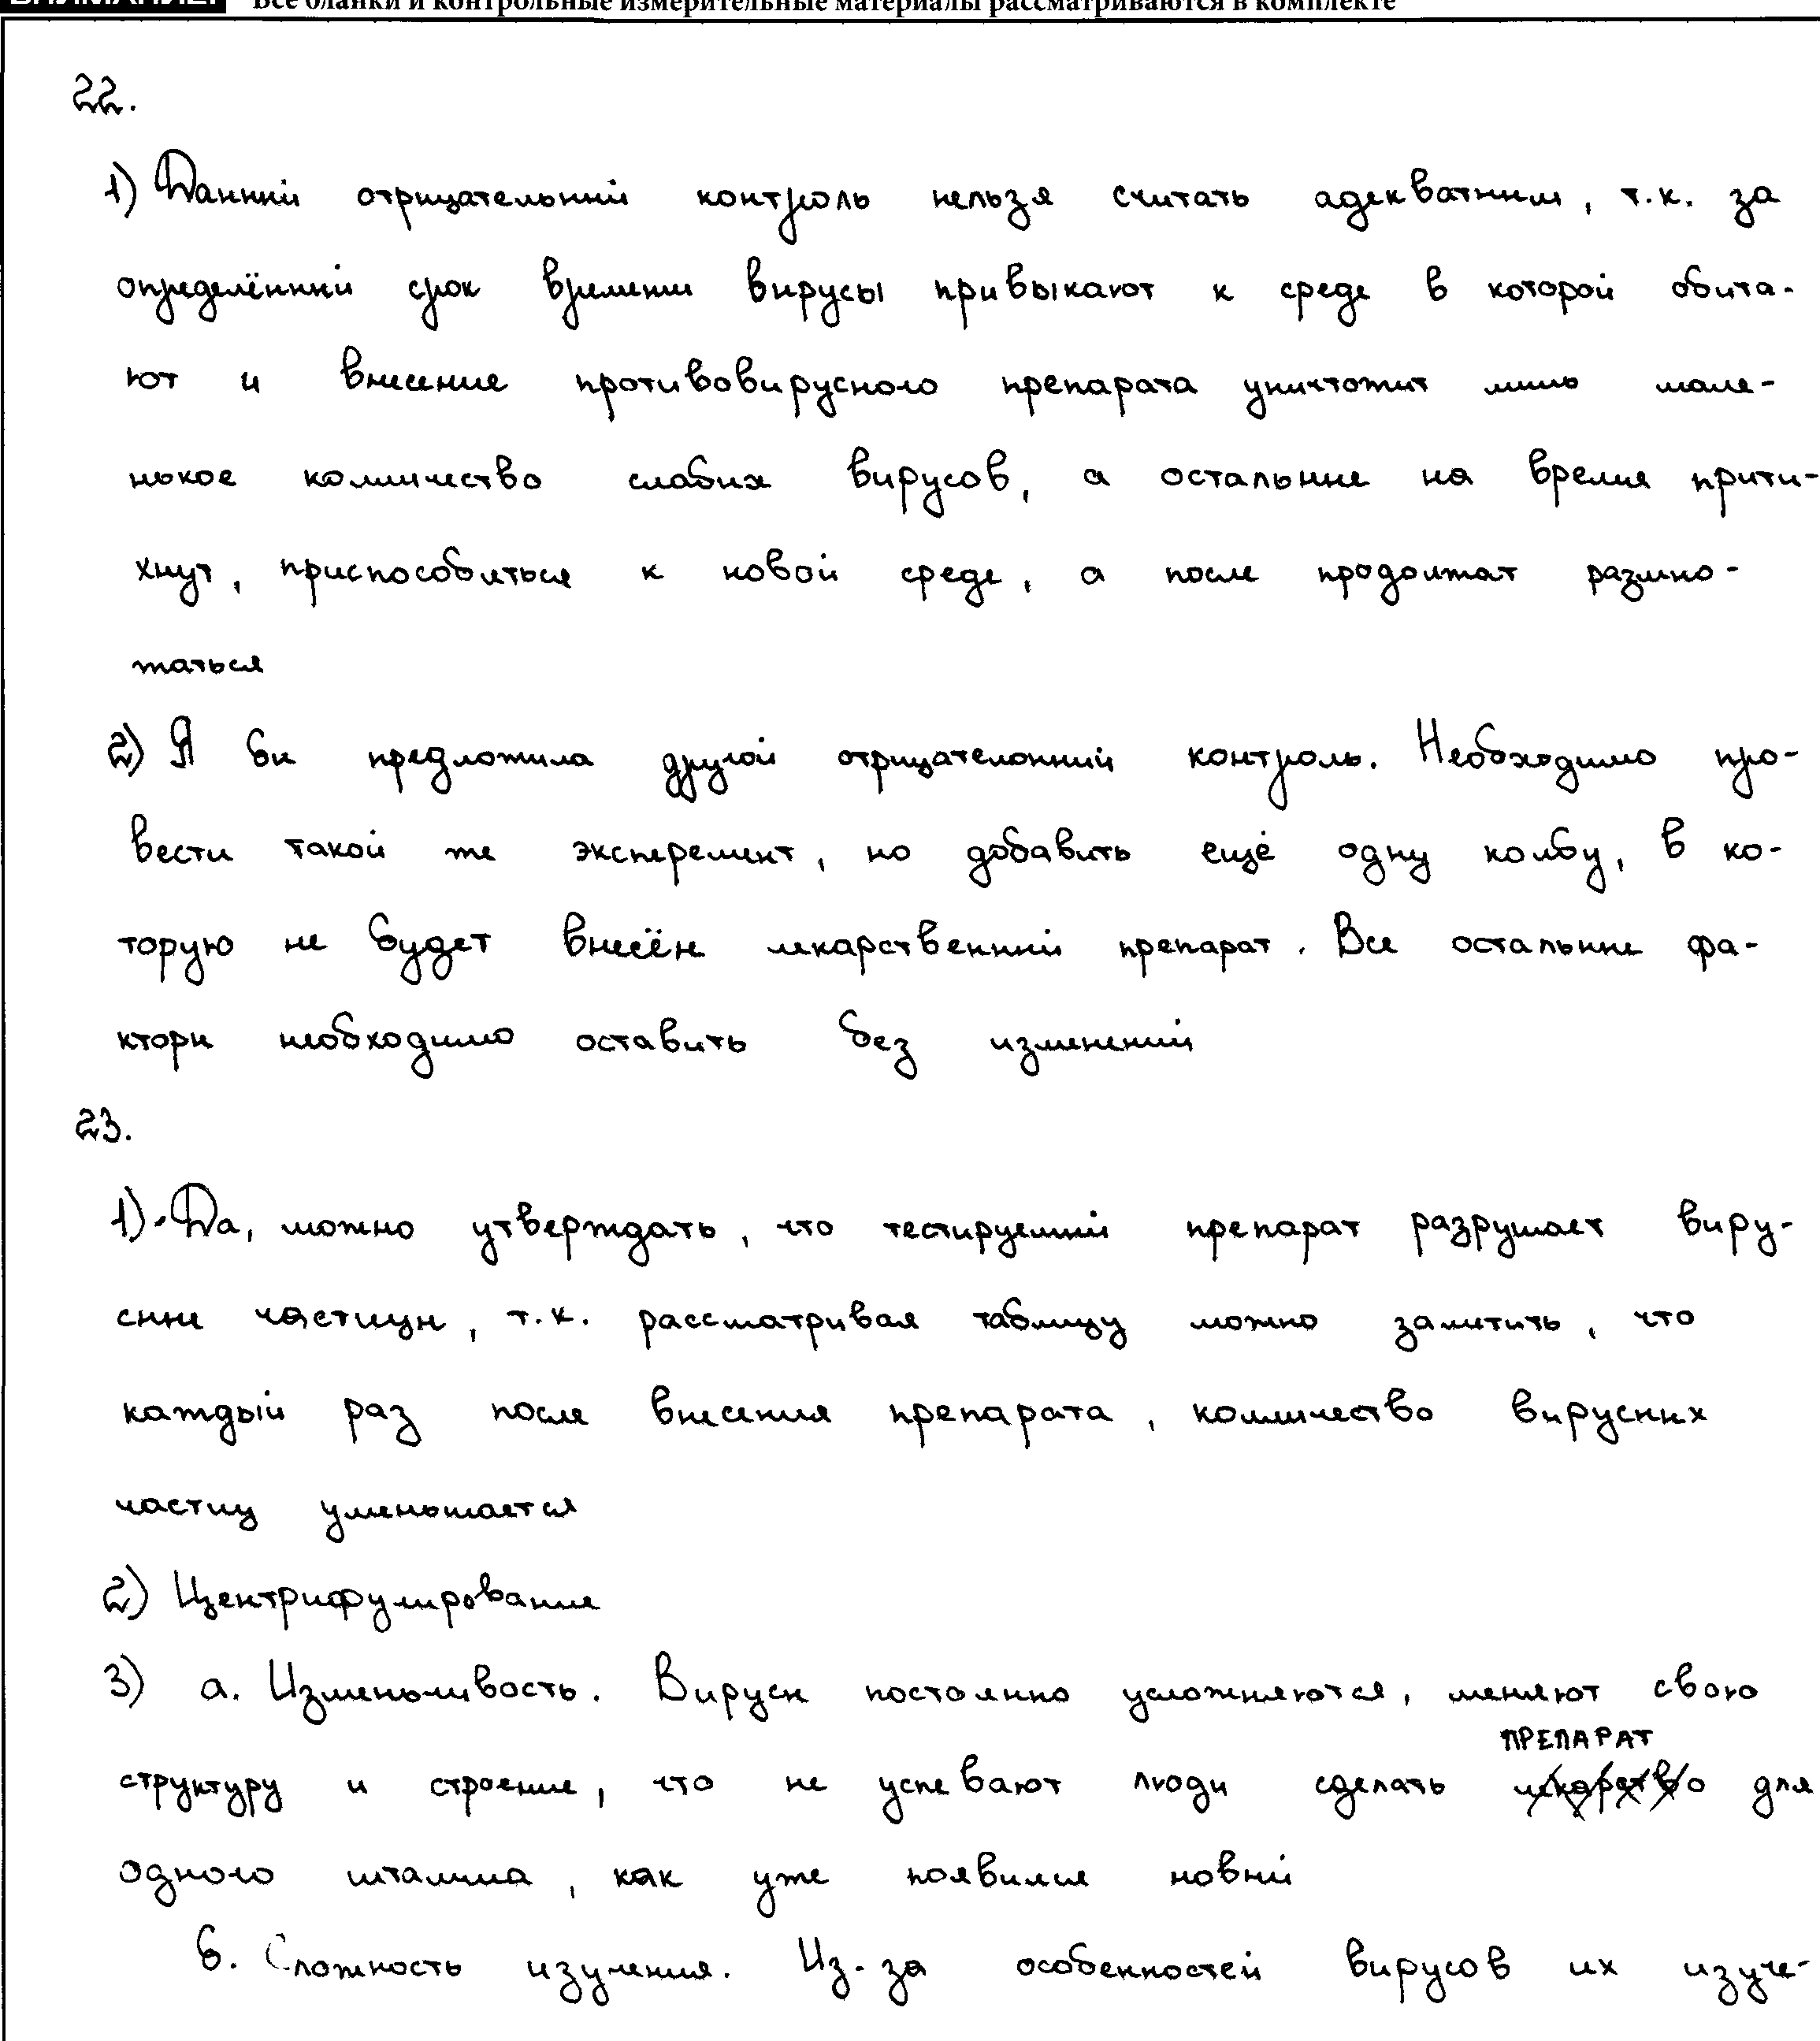 Все бланки и контрольные измерительные материалы рассматриваются в комплекте
22.
1) Данный отрицательный контроль нельзя считать адекватным, т.к. за
определённый срок времени вирусы привыкают к среде в которой обита-
ют и внесение противовирусного препарата уничтожит лишь мале-
нькое количество слабых вирусов, а остальные на время прити-
хнут, приспособиться к новой среде, а после продолжат размно-
жаться
2) Я бы предложила другой отрицательный контроль. Необходимо про-
вести такой же эксперемент, но добавить ещё одну колбу, в ко-
торую не будет внесён лекарственный препарат. Все остальные фа-
кторы необходимо оставить без изменений
23.
1) Да, можно утверждать, что тестируемый препарат разрушает виру-
сные частицы, т.к. рассматривая таблицу можно заметить, что
каждый раз после внесения препарата, количество вирусных
частиц уменьшается
2) Центрифугирование
3) а. Изменьчивость. Вирусы постоянно усложняются, меняют свою
ПРЕПАРАТ
структуру и строение, что не успевают люди сделать лекарство для
одного штамма, как уже появился новый
б. Сложность изучения. Из-за особенностей вирусов их изуче-